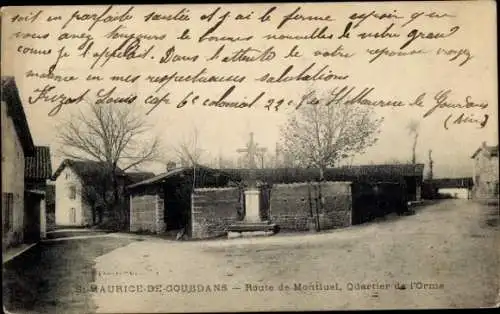 soit en parfaite santée et j'ai le ferme espoir que
vous avez toujours de bonnes nouvelles de votre grand
comme je l'appelait. Dans l'attente de votre réponse recevez
ma mon et mes respectueuses salutations
Frizot Louis cap 6e colonial 22e St Maurice de Gourdans
(Ain)
ST-MAURICE-DE-GOURDANS – Route de Montluel, Quartier de l'Orme